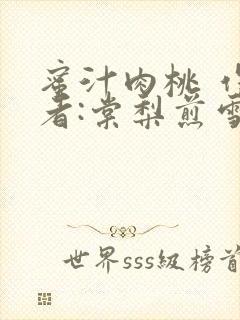 蜜汁肉桃 
者:棠梨煎雪
世界sss级榜首